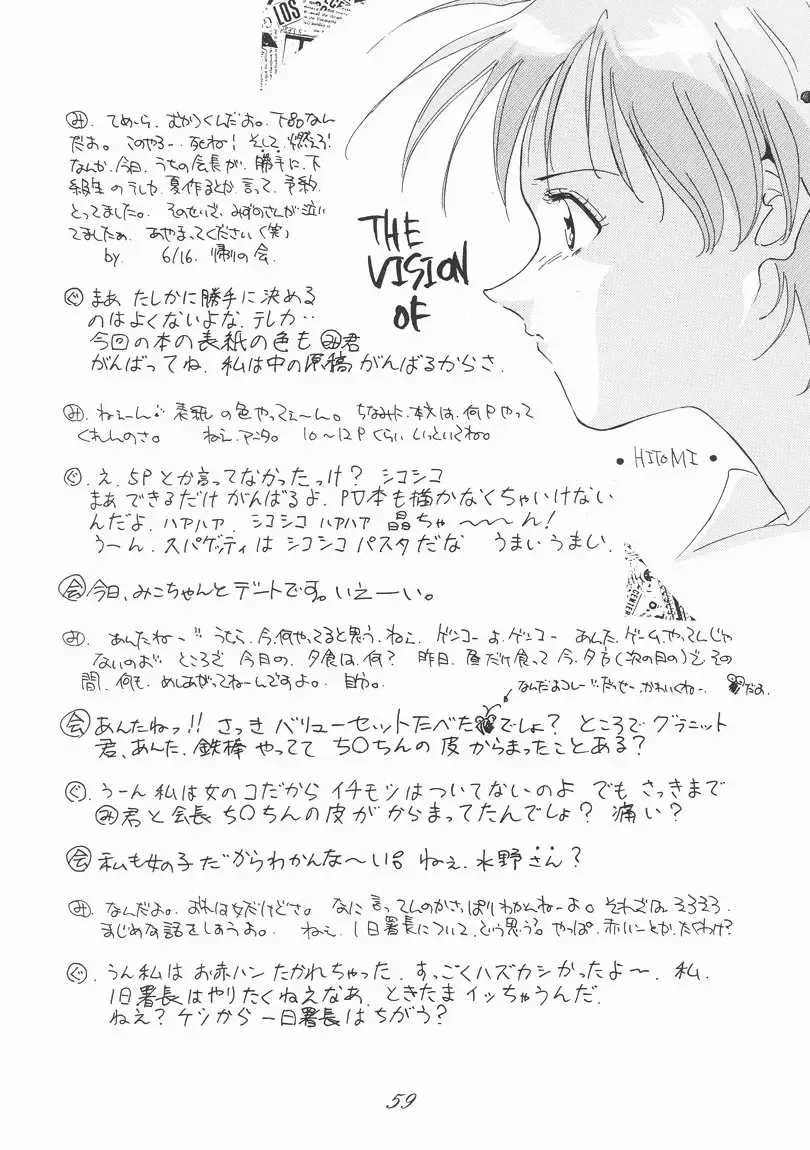 LOS
み. てめーら. むかつくんだよ. 下品なん
だよ。 このやろー. 死ねー! そして 燃えろ!
なんか. 今日. うちの会長が. 勝手に. 下
級生 の テレカ. 夏作るとか. 言って. 予約
とってました。 そのせいで. みずのさんが 泣い
てましたぁ. あやまってください (笑)
by. 6/16. 帰りの会.
THE
VISION
OF
ぐ まぁ たしかに 勝手に 決める
のは よくないよな. テレカ‥
今回の本の 表紙の色も み君
がんばってね. 私は 中の 原稿 がんばるからさ.
み. ねぇーん. 表紙 の色 やってぇーん。 ちなみに. 本文は. 何P やって
くれんのさ。 ねぇ. アンタ。 10〜12P くらい. いっといてね。
• HITOMI •
ぐ. え. 5P とか 言ってなかったっけ? シコシコ
まぁ できるだけ がんばるよ. P口本も 描かなくちゃいけない
んだよ. ハァハァ. シコシコ ハァハァ 晶ちゃ〜〜〜ん!
うーん. スパゲッティは シコシコ パスタだな うまい うまい.
CENTER
会 今日、みこちゃんと デートです。いえーい。
み. あんたねー 今. 何やってると思う. ねぇ. ゲンコー よ. ゲンコー あんた. ゲーム. やってんじゃ
ないのよ ところで 今日の. 夕食は. 何? 昨日. 昼だけ食って 今. 夕方 (次の日の) で. その
間. 何も. めしあがってねーんですよ。 自分。
なんだよコレー だっせー. かわいくねー. だよ.
会 あんたねっ!! さっき バリューセット たべた でしょ? ところで グラニット
君、あんた. 鉄棒 やってて ち〇ちんの 皮 からまったことある?
ぐ. うーん 私は 女のコだから イチモツは ついてないのよ でも さっきまで
み君と 会長 ち〇ちんの 皮が からまってたんでしょ? 痛い?
会 私も女の子 だからわかんな〜い。 ねぇ. 水野さん?
み. なんだよ。 おれは女だけどさ。 なに 言ってんのか さっぱりわかんねーよ。 それでは. そろそろ.
まじめな話をしようよ。 ねぇ. 1日署長について. どう思う。 やっぱ. 赤ハンとか. たくわけ?
ぐ. うん 私は お赤ハン たかれちゃった. すっごく ハズカシかったよ〜. 私.
1日署長は やりたくねえなぁ. ときたま イッちゃうんだ.
ねえ? ケツから 一日署長は ちがう?
59